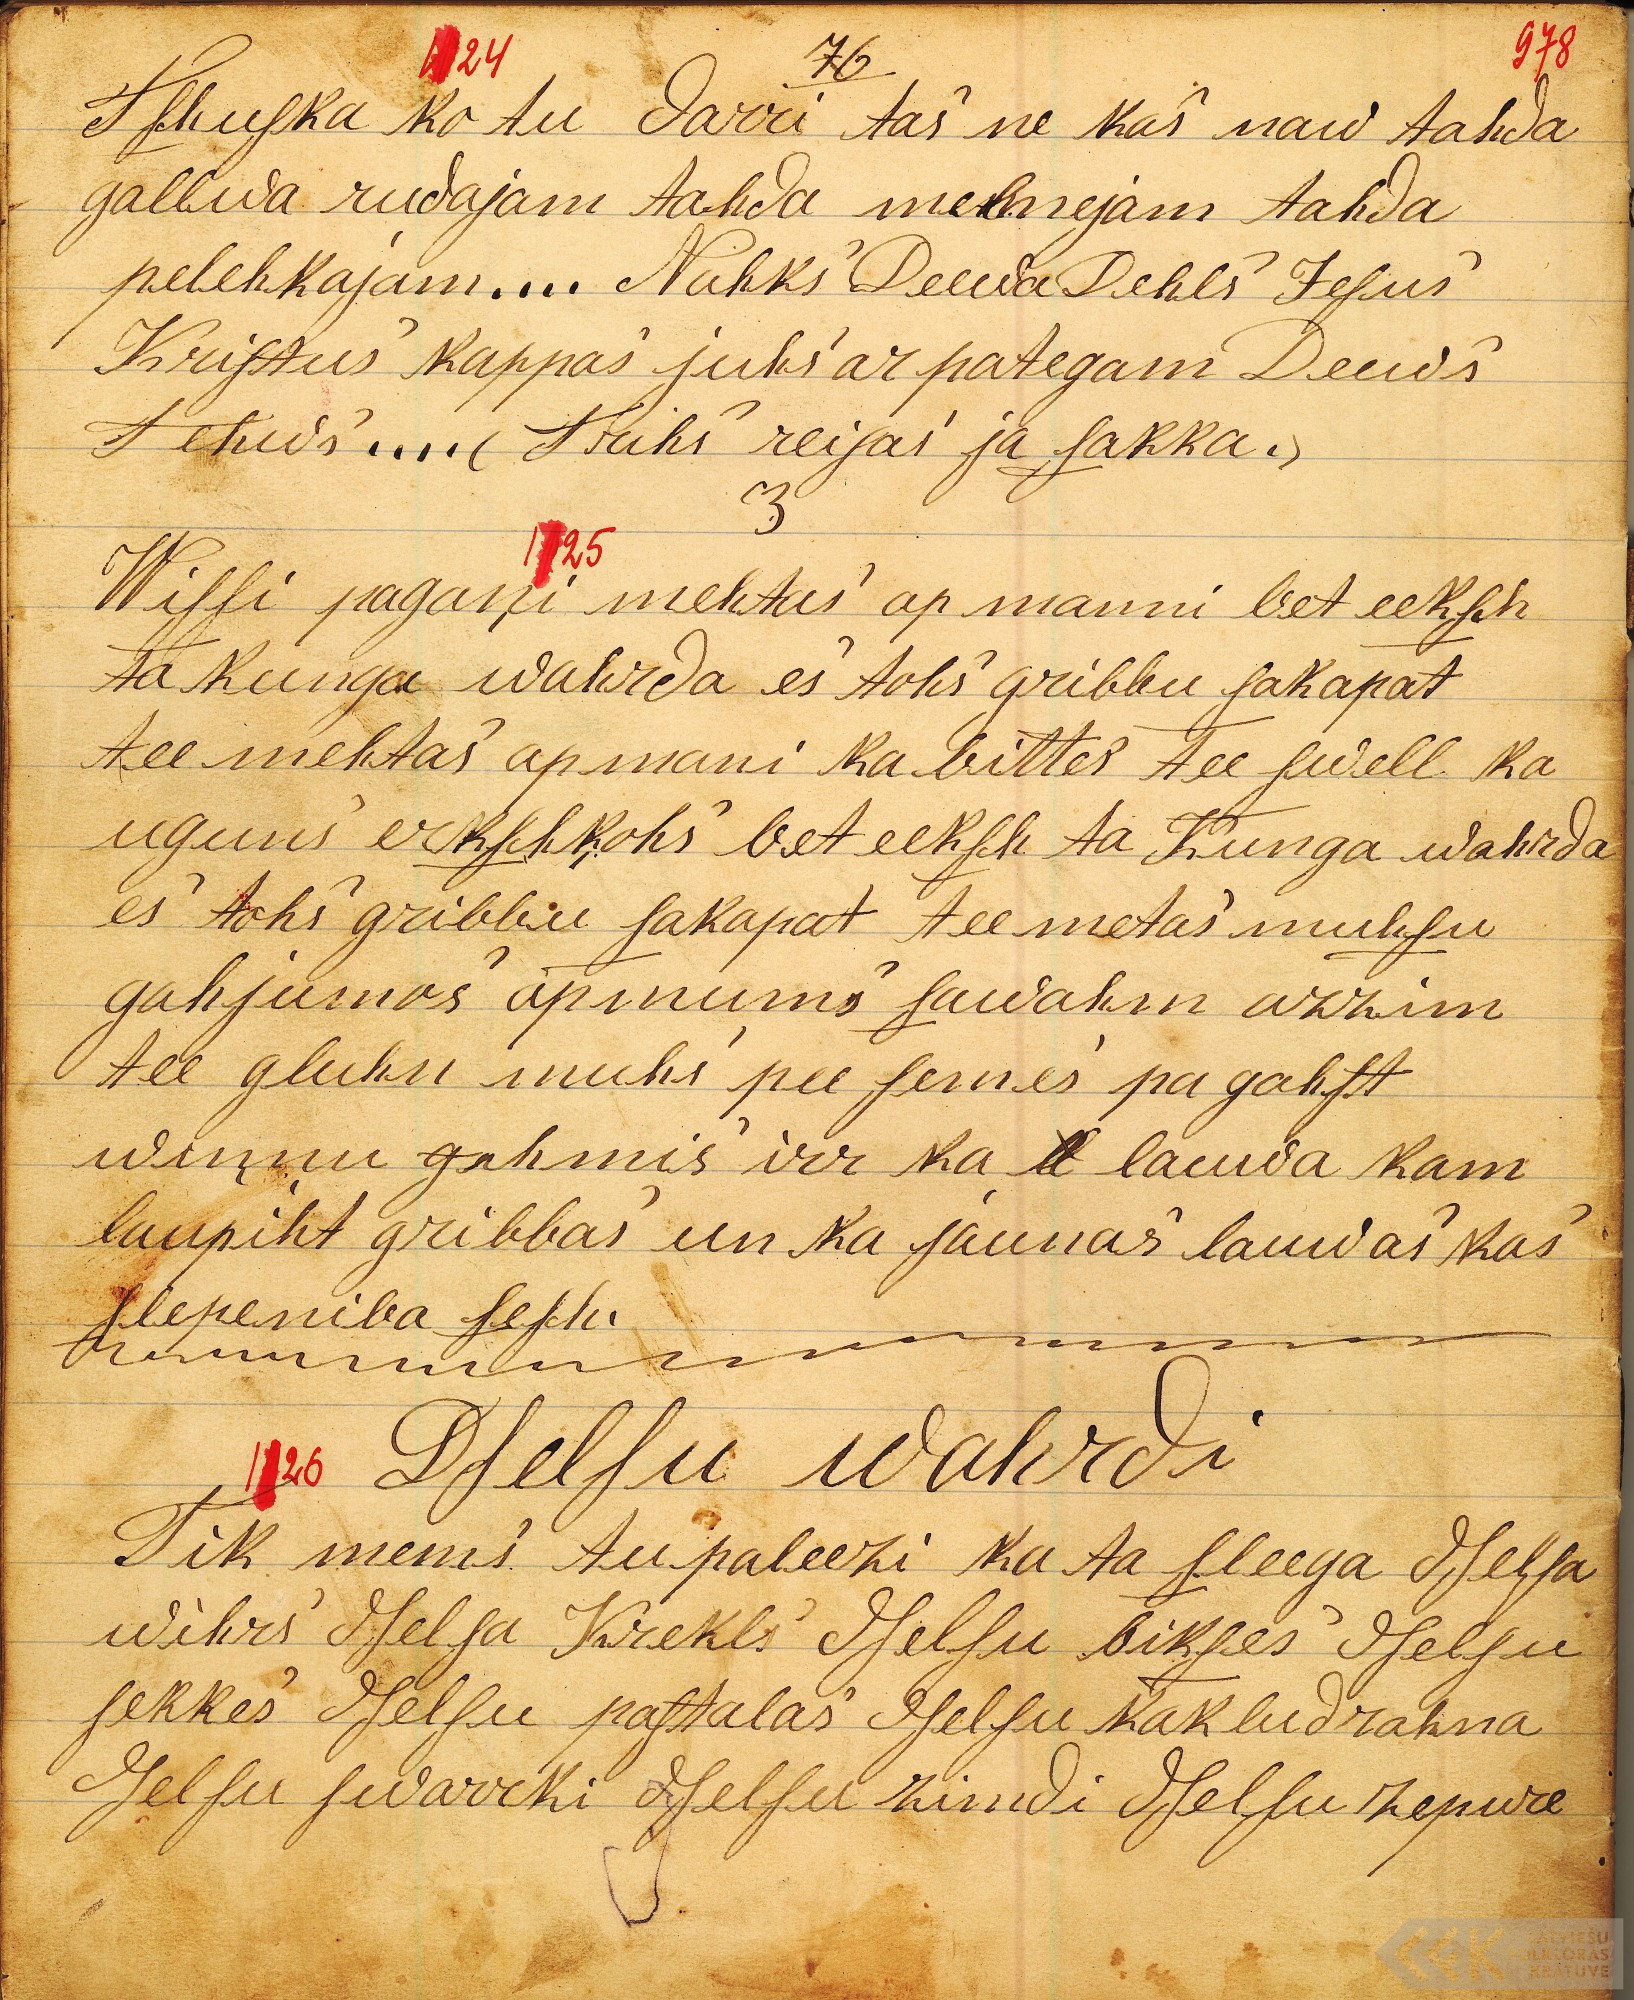 1124 76 978
Tſchuſka ko tu darri tas ne kas naw tahda
gallwa rudajam tahda melnejam tahda
pelehkajam.... Nahks Deewa Dehls Jeſus
Kriſtus kappas juhs ar pategam Deews
Tehws....( Trihs reiſas ja ſakka.)
3
1125
Wiſſi pagaņi mehtas ap manni bet eekſch
ta kunga wahrda es tohs gribbu ſakapat
tee mehtas ap mani ka bittes tee ſwell ka
uguns erkſchķohs bet eekſch ta Kunga wahrda
es tohs gribbu ſakapat tee metas muhſu
gahjumos ap mums ſawahm azzim
tee gluhn muhs pee ſemes pagahſt
wiņņu gihmis irr ka lauwa kam
laupiht gribbas un ka jaunas lauwas kas
ſlepeniba ſeſch.
1126 Dſelſu wahrdi
Tik mems tu paleezi ka ta ſleega dſelſa
wihrs dſelſa Krekls dſelſu bikſes dſelſu
ſekkes dſelſu paſtalas dſelſu kakludrahna
dſelſu ſwarrki dſelſu zimdi dſelſu zepure
LATVIEŠU
FOLKLORAS
KRĀTUVE